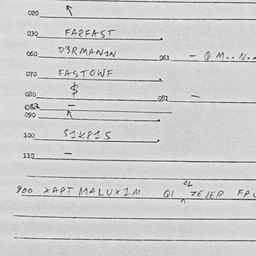 020
030 FARFAST
060 D3RMAN1N 061 - Q M..N..
070 FASTOWF
080 $ 081 -
082 -
090
100 S1K81S
110 -
900 XAPT MALUX1M Q1 ZEJER